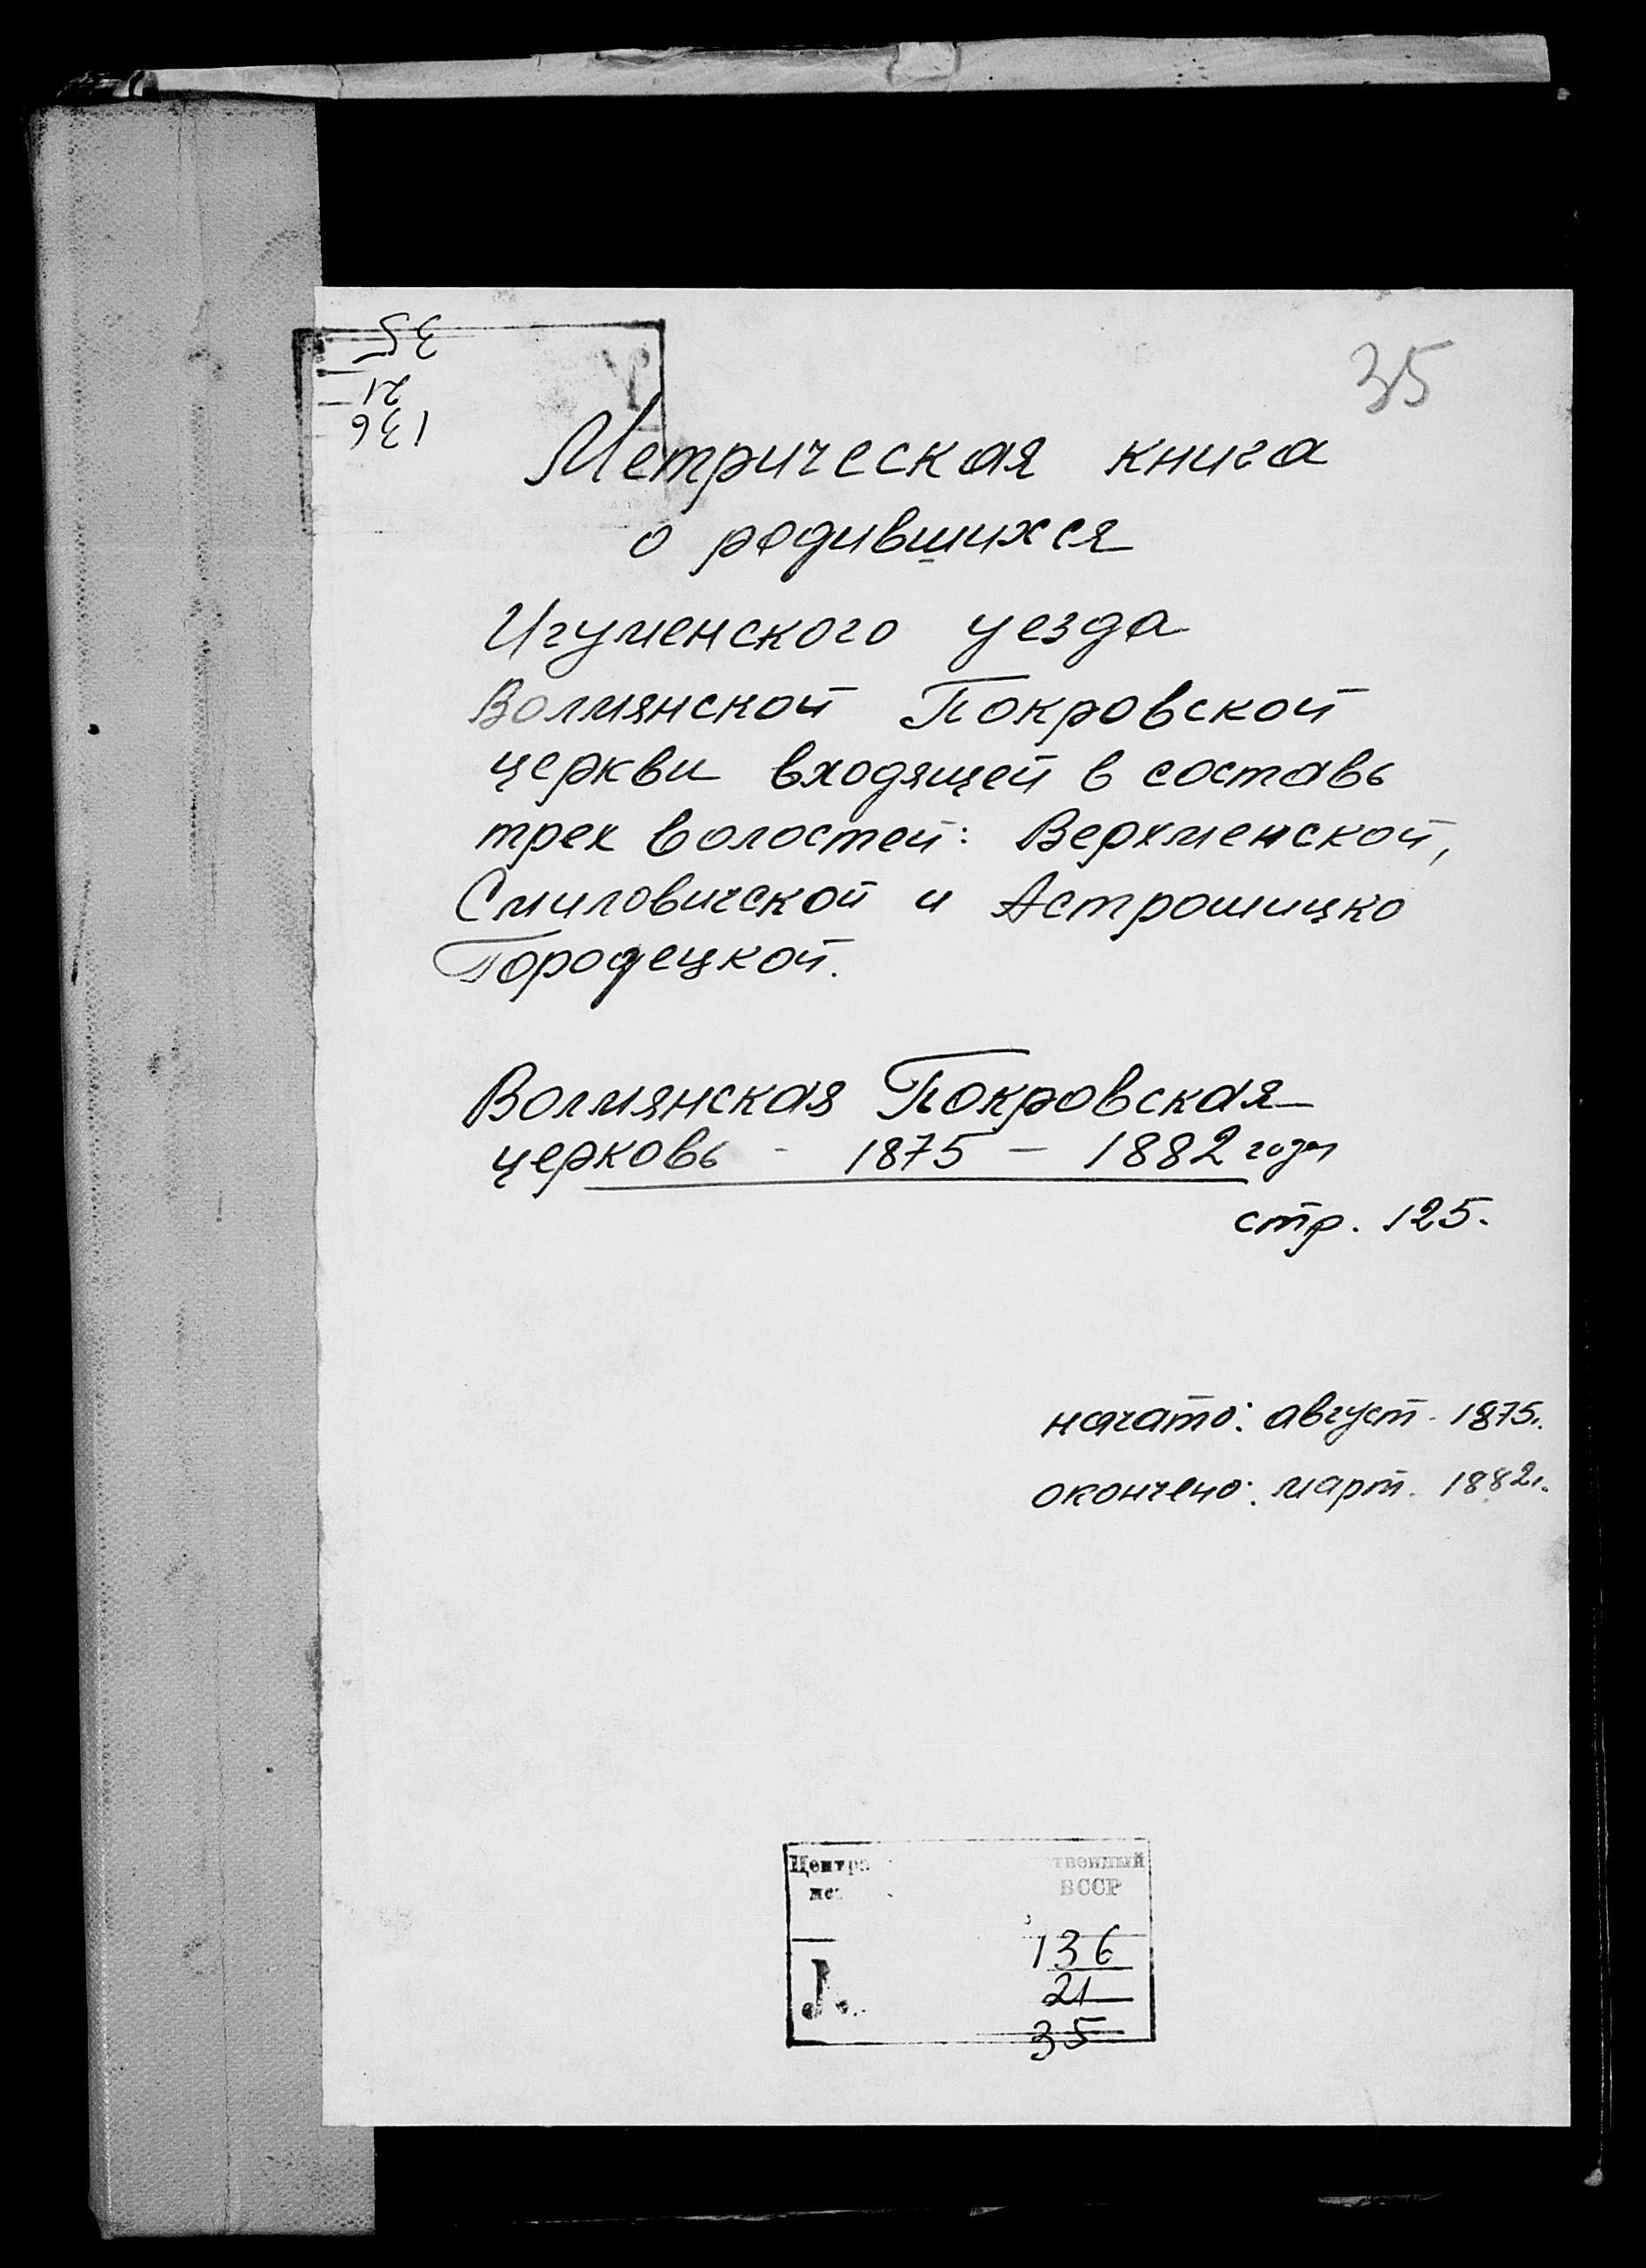 35
21
136
35
Метрическая книга
о родившихся
Игуменского уезда
Волмянской Покровской
церкви входящей в составь
трех волостей: Верхменской,
Смиловичской и Астрошицко
Городецкой.
Волмянская Покровская
церковь - 1875 - 1882 годы
стр. 125.
начато: август. 1875г.
окончено: март. 1882г.
БССР
136
21
35